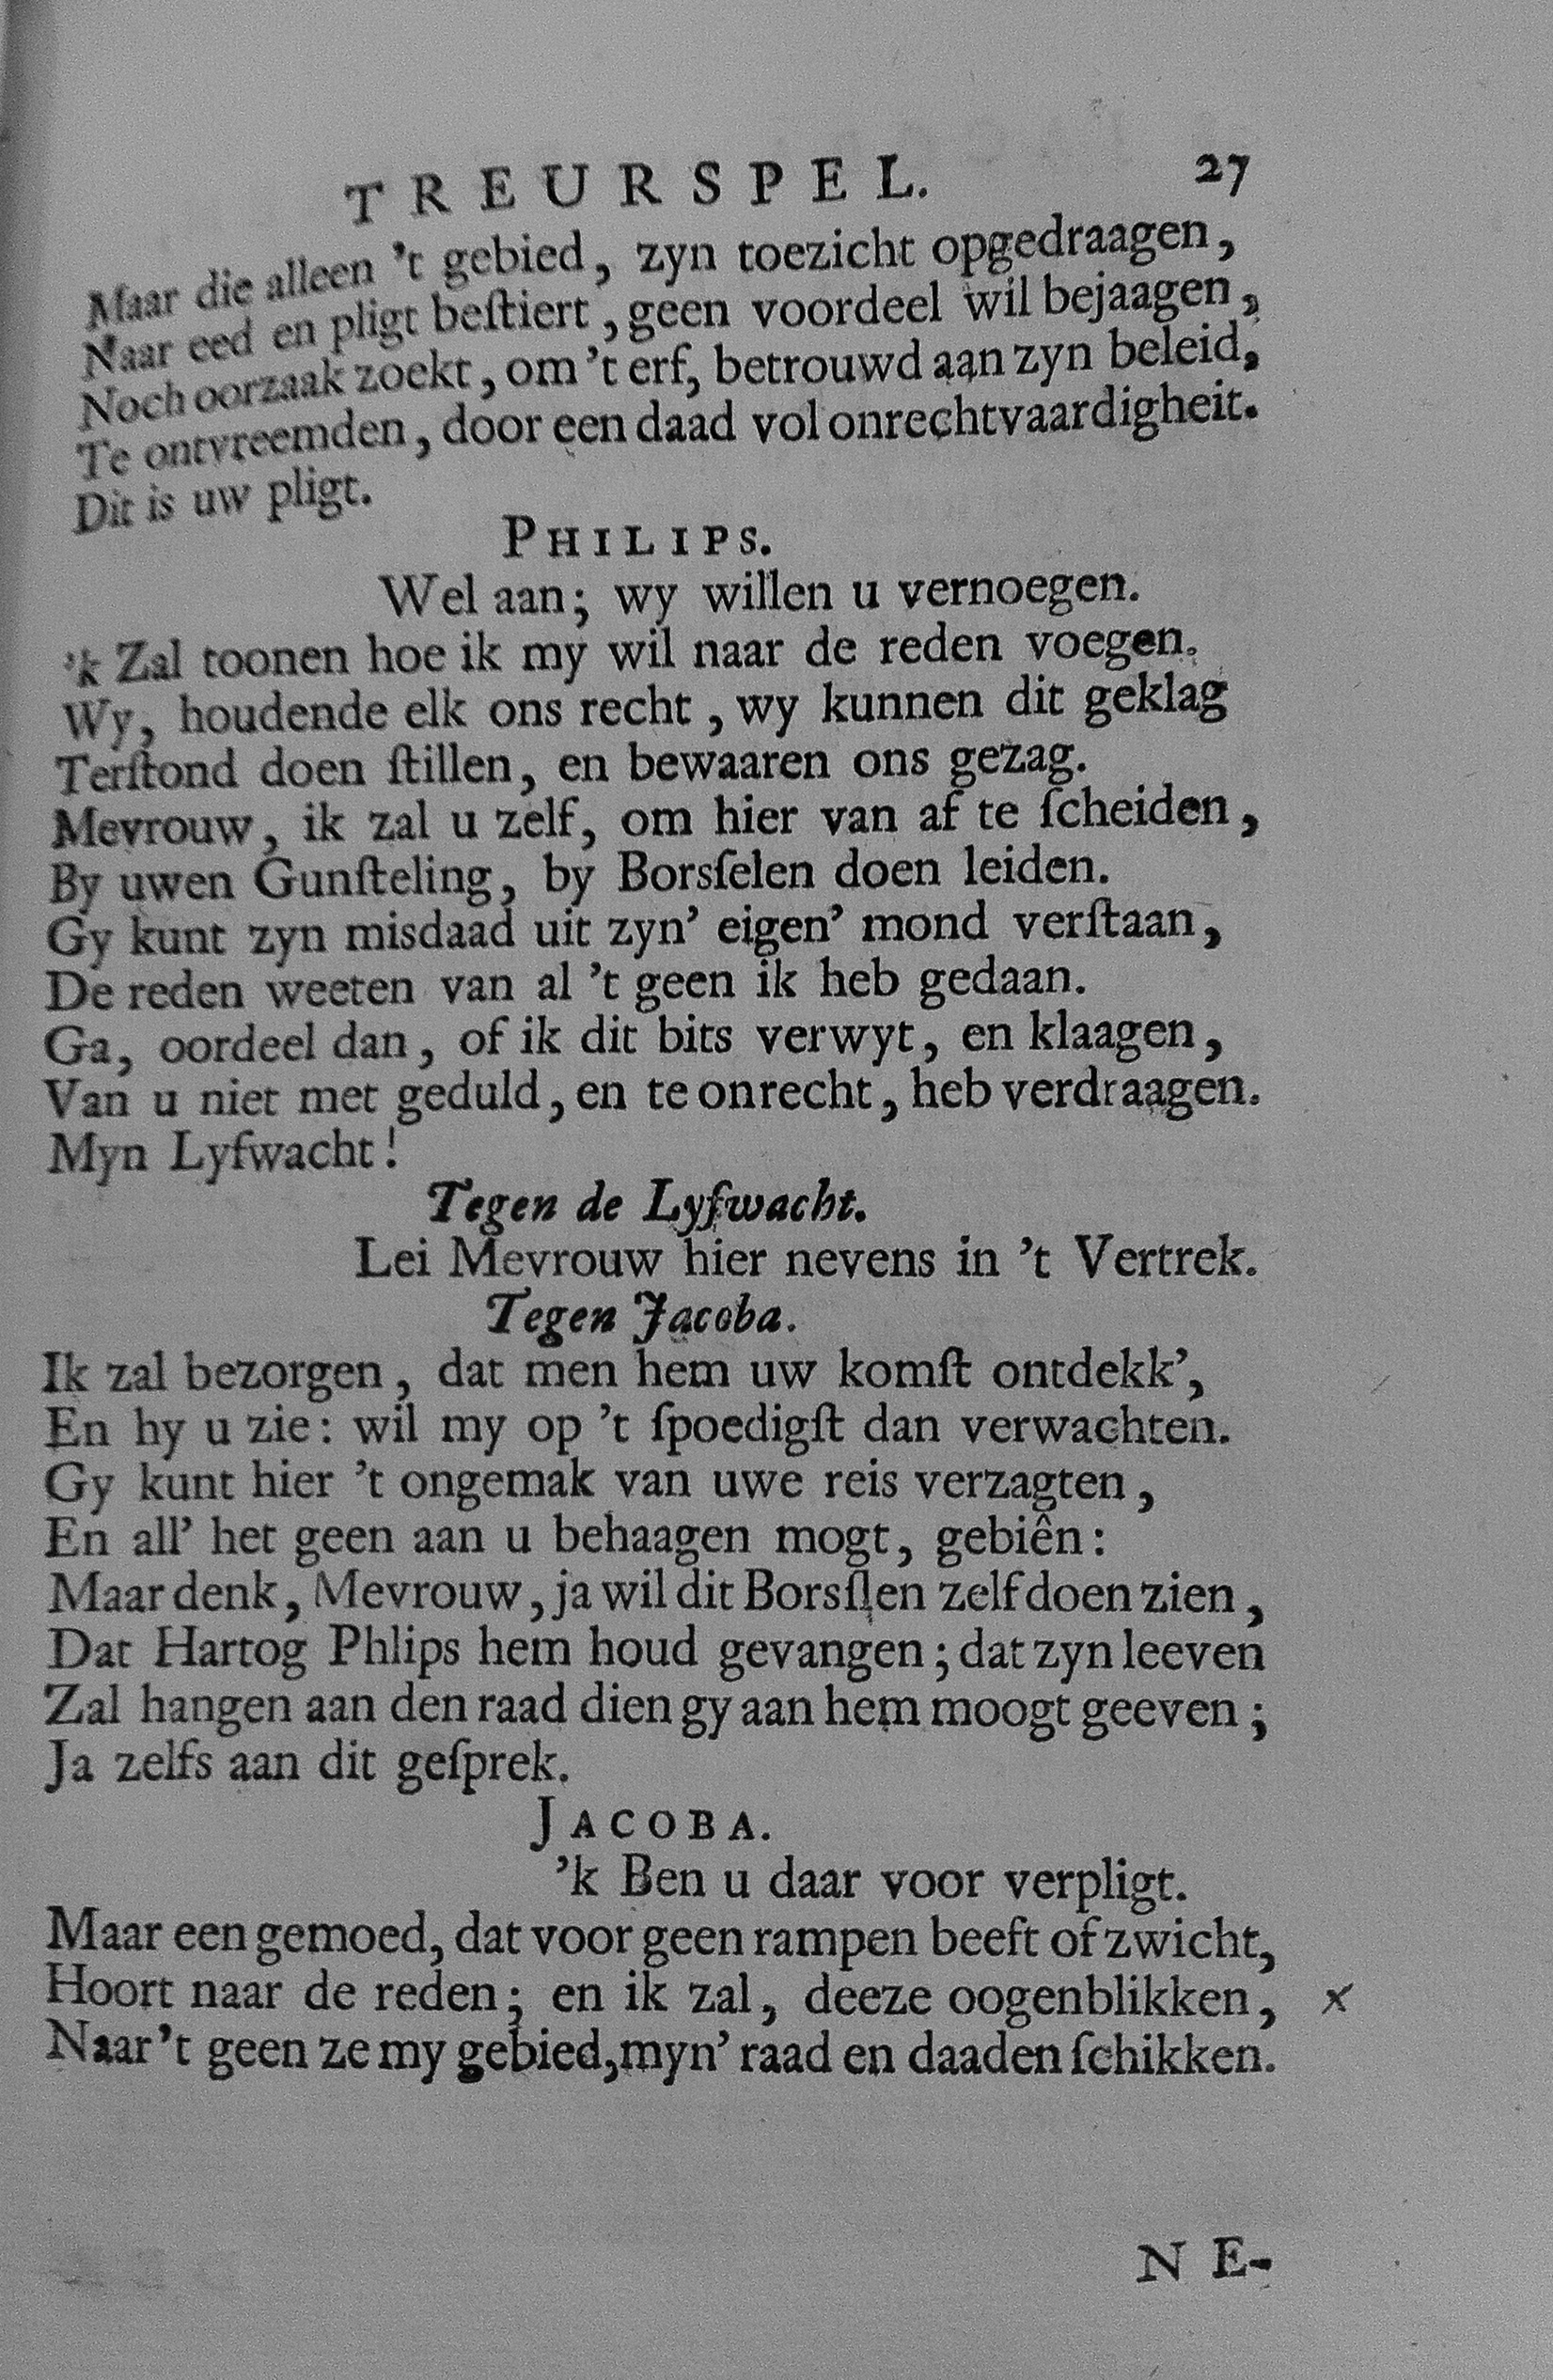 TREURSPEL. 27
Maar die alleen 't gebied, zyn toezicht opgedraagen,
Naar eed en pligt beſtiert, geen voordeel wil bejaagen,
Noch oorzaak zoekt, om 't erf, betrouwd aan zyn beleid,
Te ontvreemden, door een daad vol onrechtvaardigheit.
Dit is uw pligt.
PHILIPS.
Wel aan; wy willen u vernoegen.
'k Zal toonen hoe ik my wil naar de reden voegen.
Wy, houdende elk ons recht, wy kunnen dit geklag
Terſtond doen ſtillen, en bewaaren ons gezag.
Mevrouw, ik zal u zelf, om hier van af te ſcheiden,
By uwen Gunſteling, by Borsſelen doen leiden.
Gy kunt zyn misdaad uit zyn' eigen' mond verſtaan,
De reden weeten van al 't geen ik heb gedaan.
Ga, oordeel dan, of ik dit bits verwyt, en klaagen,
Van u niet met geduld, en te onrecht, heb verdraagen.
Myn Lyfwacht!
Tegen de Lyfwacht.
Lei Mevrouw hier nevens in 't Vertrek.
Tegen Jacoba.
Ik zal bezorgen, dat men hem uw komſt ontdekk',
En hy u zie: wil my op 't ſpoedigſt dan verwachten.
Gy kunt hier 't ongemak van uwe reis verzagten,
En all' het geen aan u behaagen mogt, gebiên:
Maar denk, Mevrouw, ja wil dit Borsſlen zelf doen zien,
Dat Hartog Phlips hem houd gevangen; dat zyn leeven
Zal hangen aan den raad dien gy aan hem moogt geeven;
Ja zelfs aan dit geſprek.
JACOBA.
'k Ben u daar voor verpligt.
Maar een gemoed, dat voor geen rampen beeft of zwicht,
Hoort naar de reden; en ik zal, deeze oogenblikken, x
Naar 't geen ze my gebied, myn' raad en daaden ſchikken.
NE-